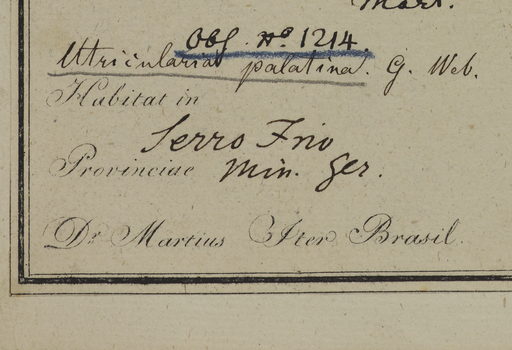 Mart.
Obs. No 1214.
Utricularia palatina. G. Web.
Habitat in
Serro Frio
Provinciae Min. Ger.
Dr. Martius Iter Brasil.